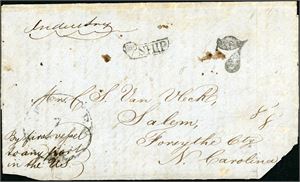 SHIP
7
Mrs. C. S. Van Vleck,
Salem,
Forsythe Cty
N. Carolina,
By first vessel
to any port
in the US